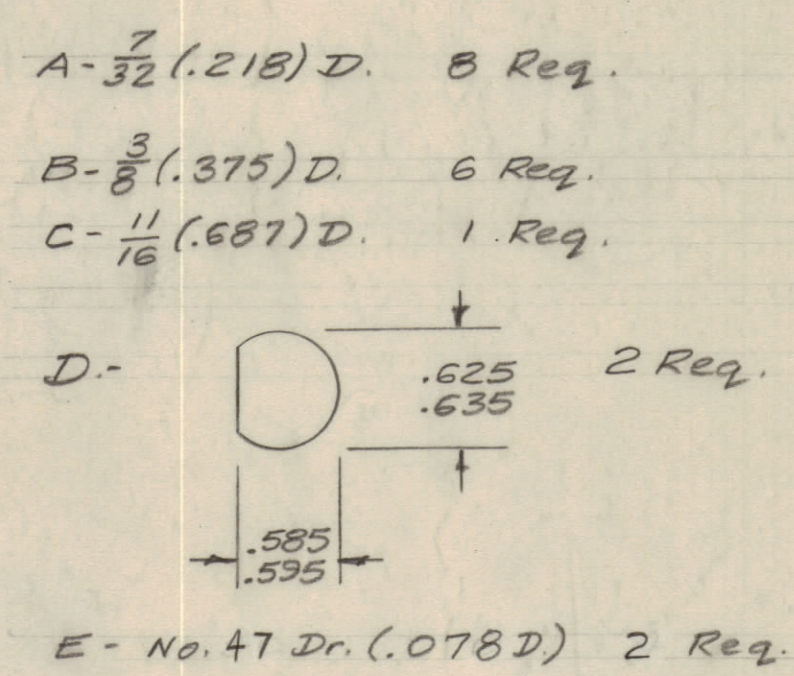 A - 7/32 (.218) D. 8 Req.
B - 3/8 (.375) D. 6 Req.
C - 11/16 (.687) D. 1 Req.
D.- .625 2 Req.
.635
.585
.595
E - No. 47 Dr. (.078 D.) 2 Req.